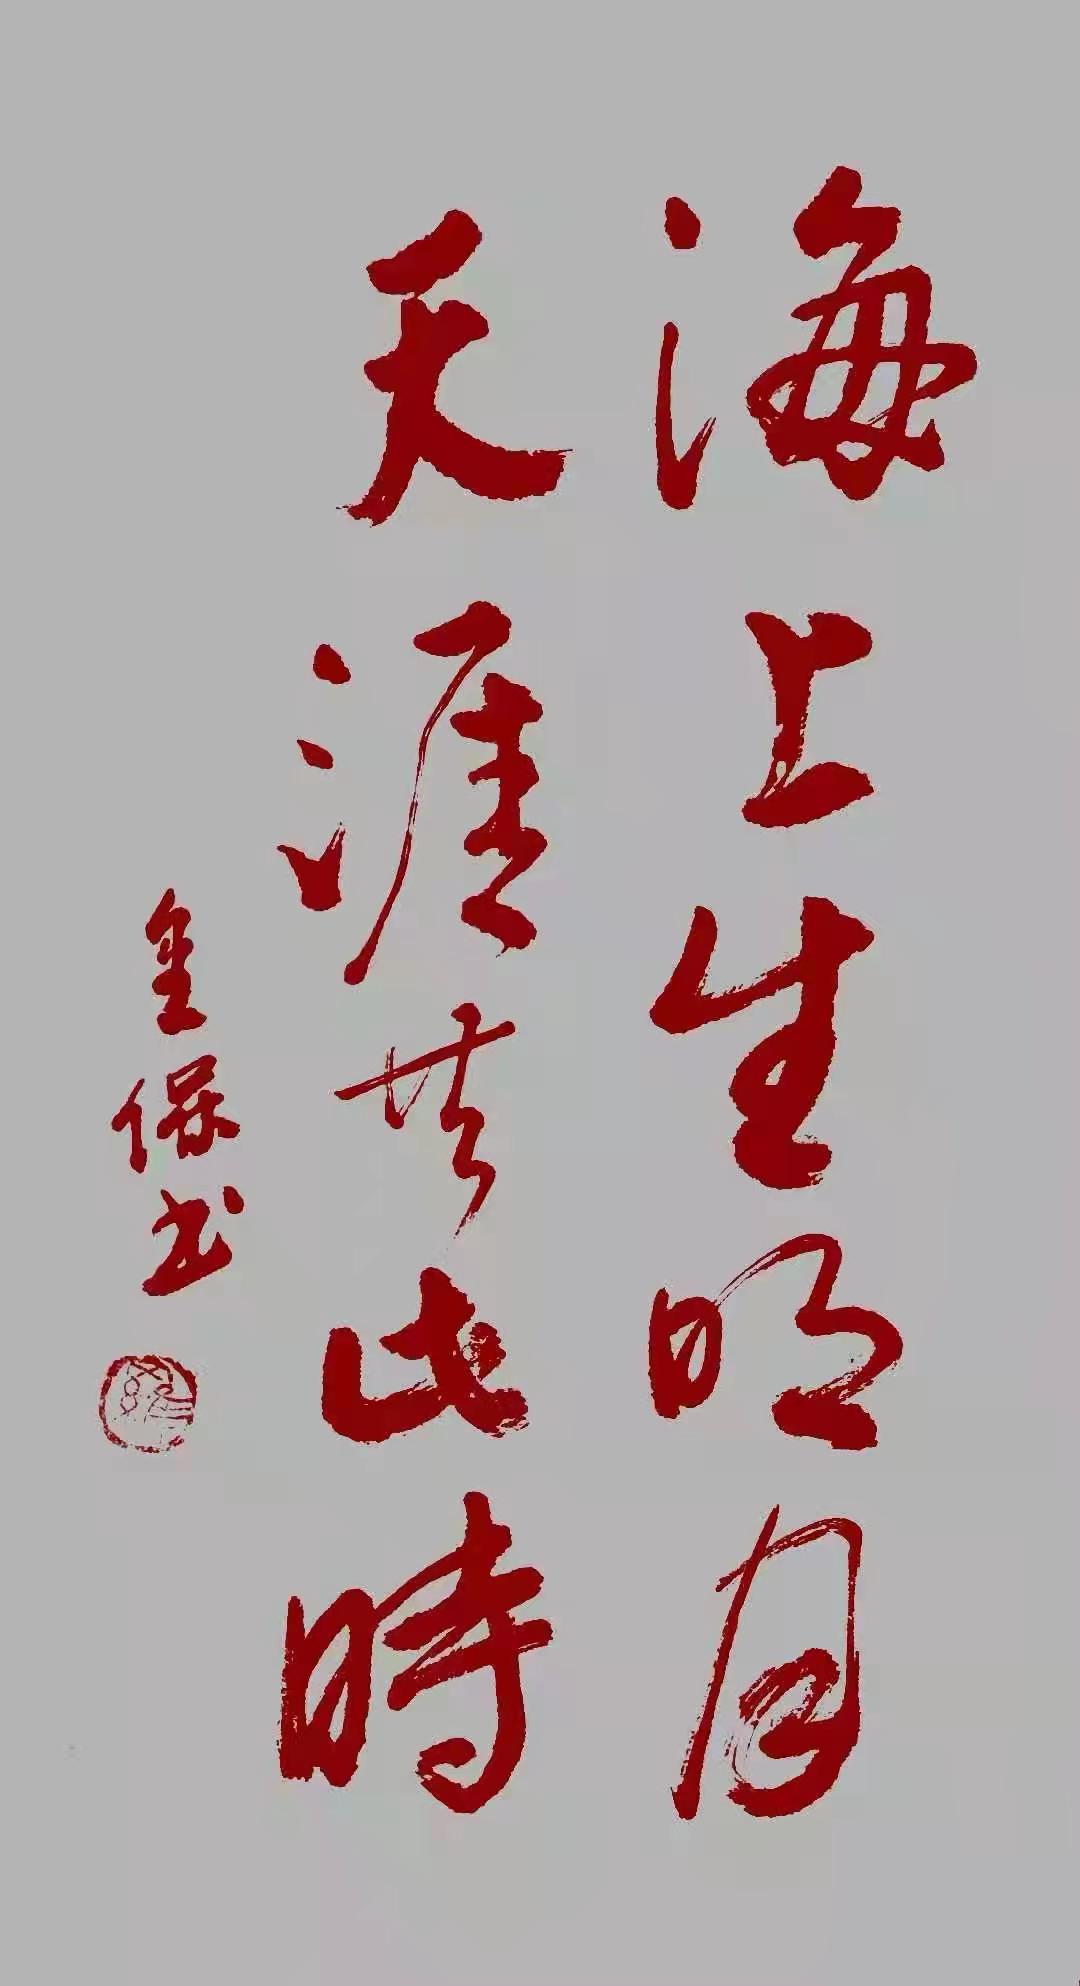 海上生明月
天涯共此時
金保书